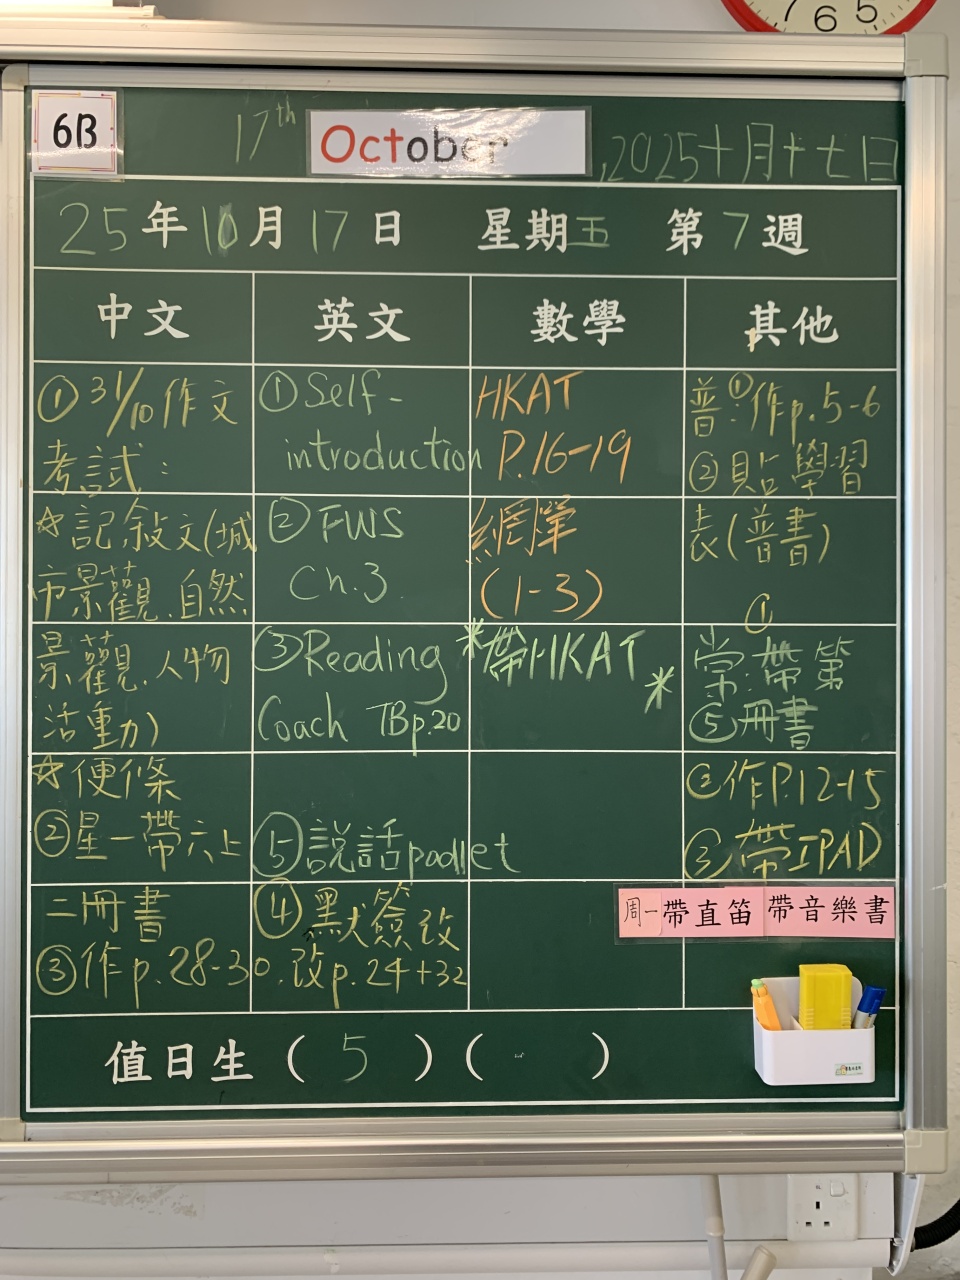 7 6 5
6B
17th October ,2025十月十七日
25年10月17日 星期五 第7週
中文 英文 數學 其他
①31/10作文
考試：
☆記敍文(城
市景觀.自然
景觀.人物
活動)
☆便條
②星一帶六上
二冊書
③作p.28-30.
①Self-
introduction
②FWS
Ch.3
③Reading
Coach TBp.20
⑤説話padlet
④默簽改
改p.24+32
HKAT
P.16-19
網單
(1-3)
*帶HKAT*
普:①作p.5-6
②貼學習
表(普書)
①
常:帶第
⑤冊書
②作P.12-15
③帶IPAD
周一帶直笛 帶音樂書
值日生 ( 5 ) ( - )